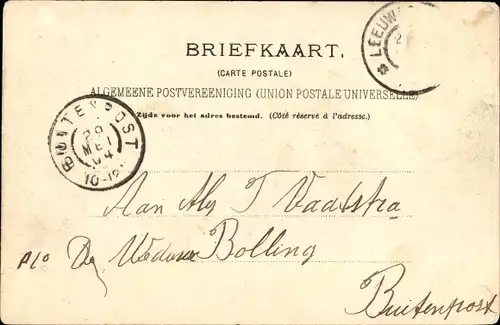 BRIEFKAART.
(CARTE POSTALE)
ALGEMEENE POSTVEREENIGING (UNION POSTALE UNIVERSELLE)
Zijde voor het adres bestemd. (Côté réservé à l'adresse.)
LEEUW
BUITENPOST
29
MEI
04
10-12
Aan T Vaatstra
p/o De Weduwe Bolling
Buitenpost